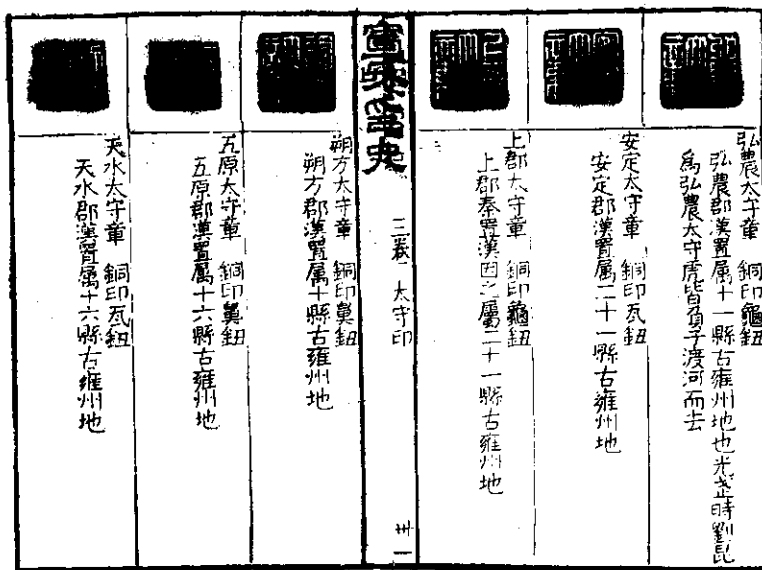 弘農太守章　銅印龜鈕
弘農郡漢置属十一縣古雍州地也光武時劉昆
為弘農太守虎皆負子渡河而去
安定太守章　銅印瓦鈕
安定郡漢置属二十一縣古雍州地
上郡太守章　銅印龜鈕
上郡秦置漢因之屬二十一縣古雍州地
三卷　太守印
卅一
朔方太守章　銅印鼻鈕
朔方郡漢置属十縣古雍州地
五原太守章　銅印鼻鈕
五原郡漢置属十六縣古雍州地
天水太守章　銅印瓦鈕
天水郡漢置属十六縣古雍州地